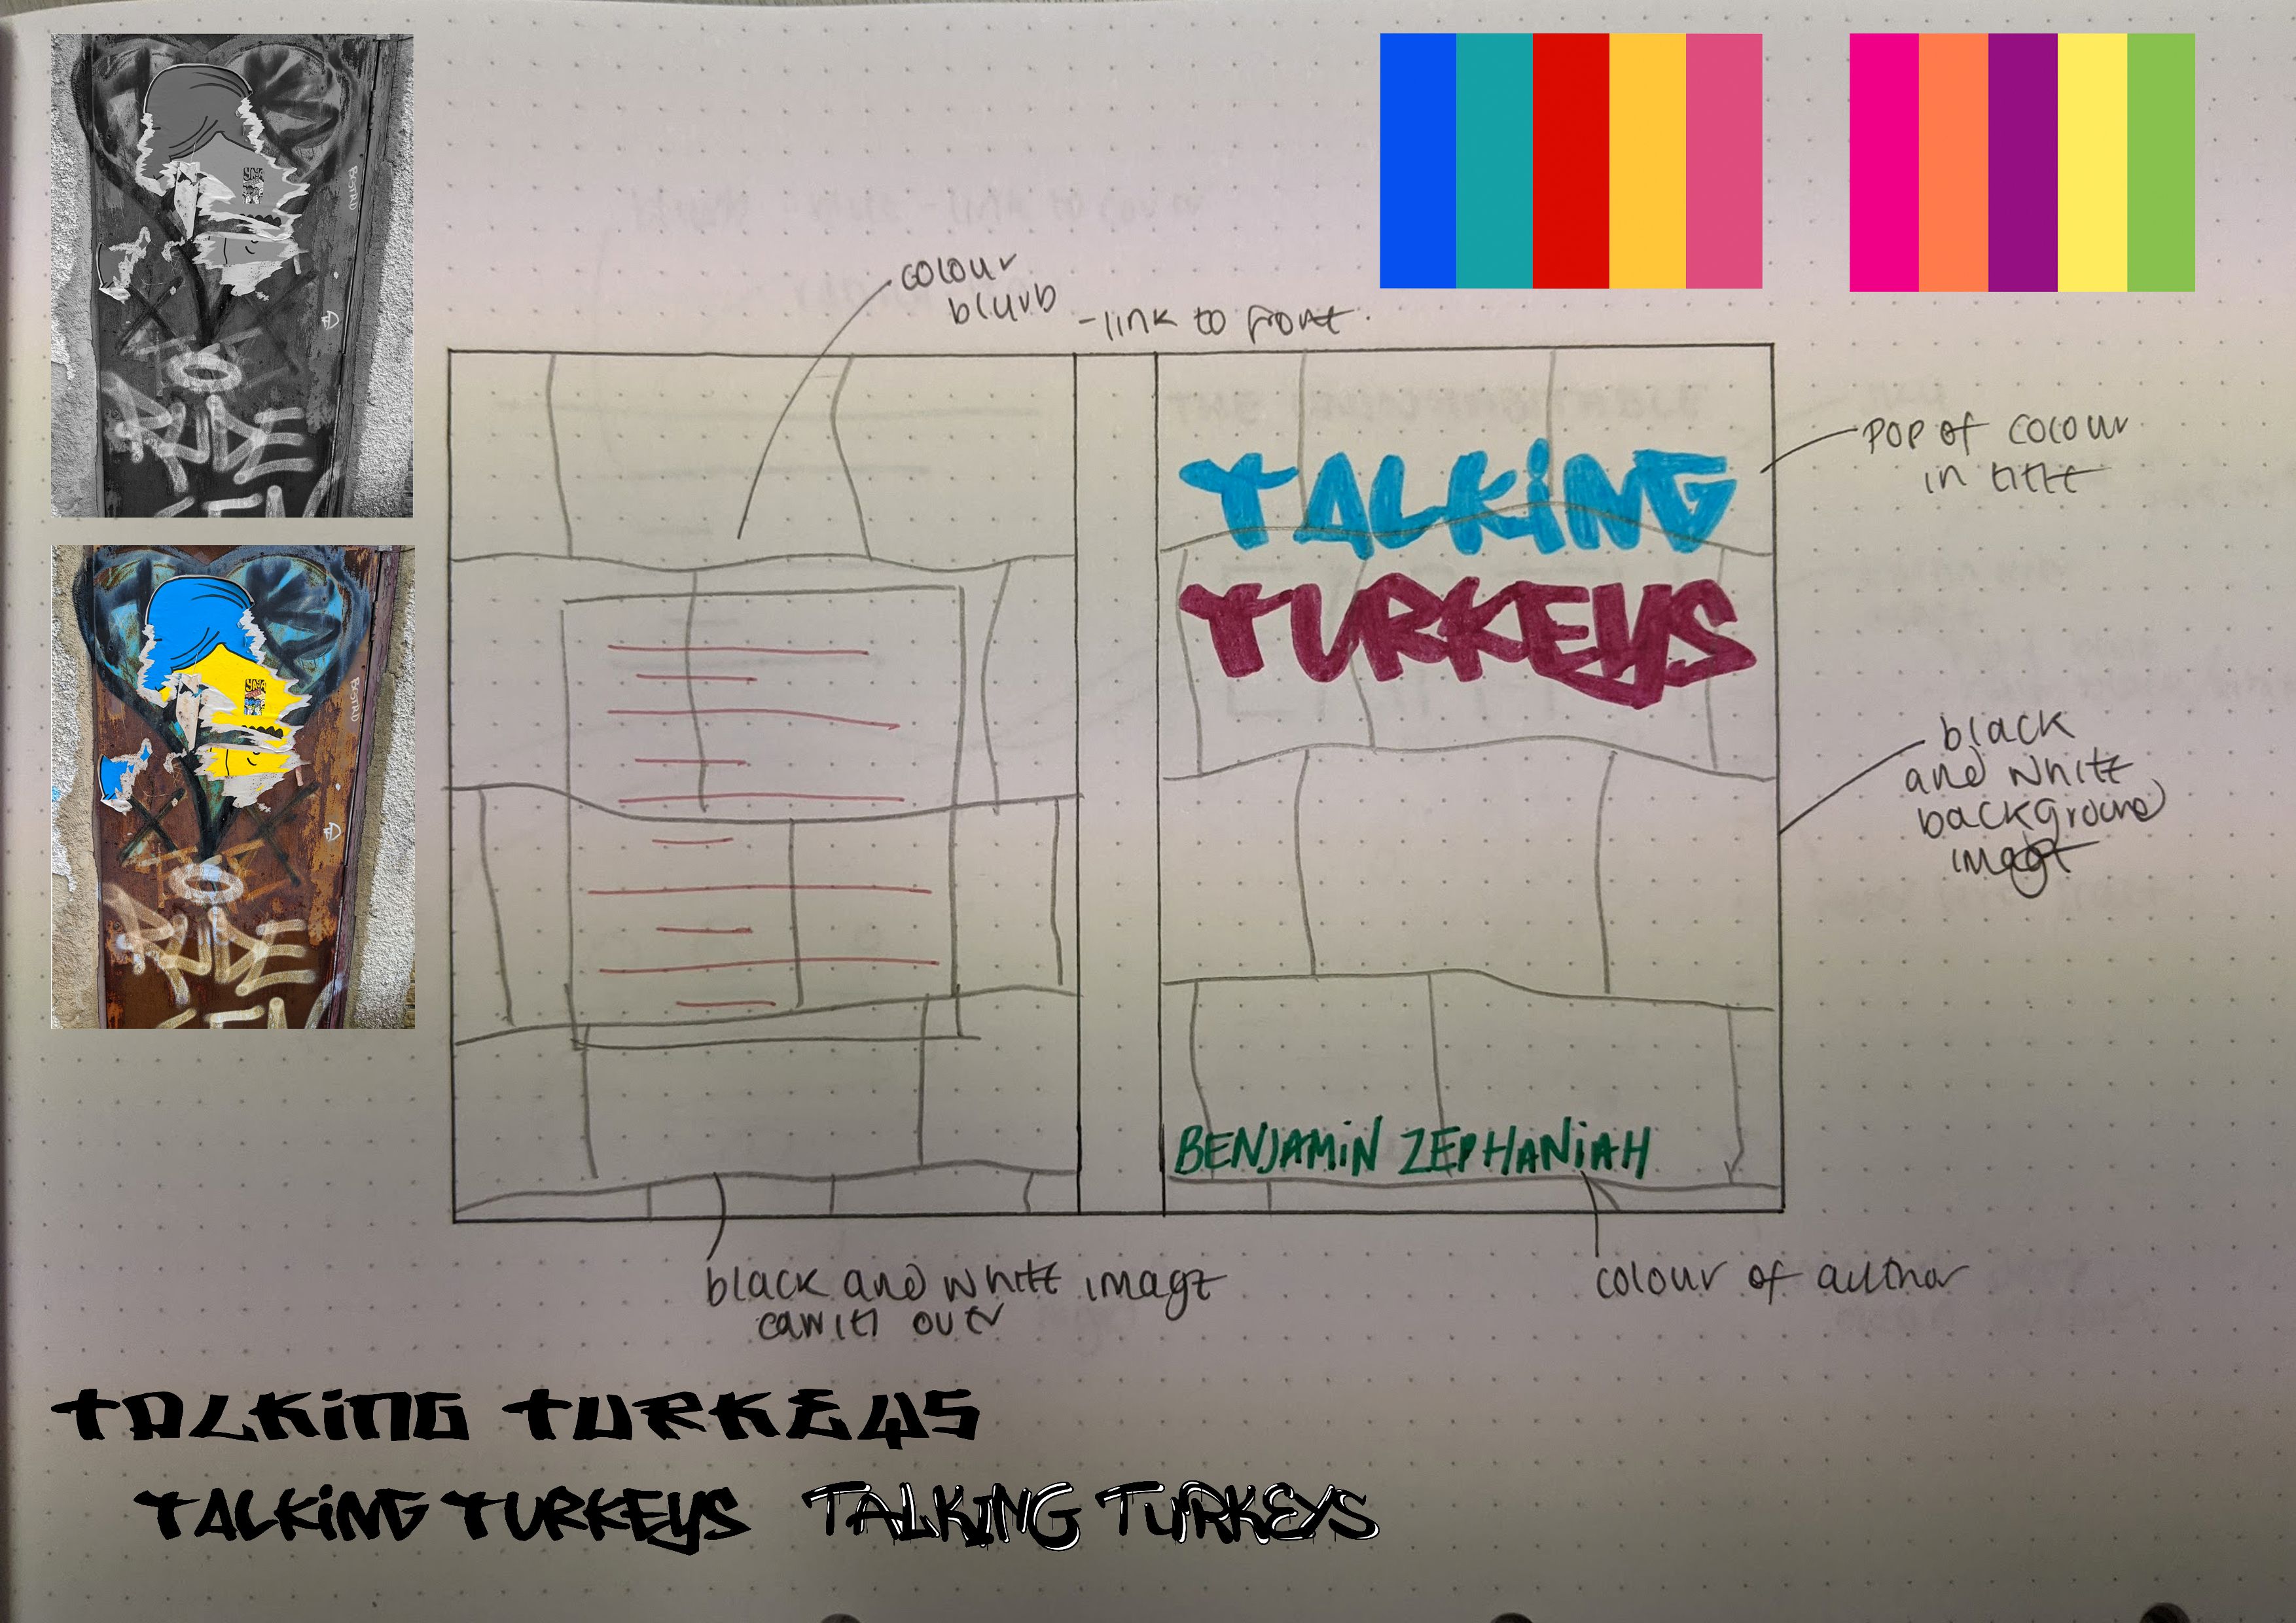 colour
blurb
-link to front.
TALKING
TURKEYS
pop of colour
in title
black
and white
background
image
BENJAMIN ZEPHANIAH
black and white image
over
colour of author
TALKING TURKEYS
TALKING TURKEYS
TALKING TURKEYS
RUDE
RUDE